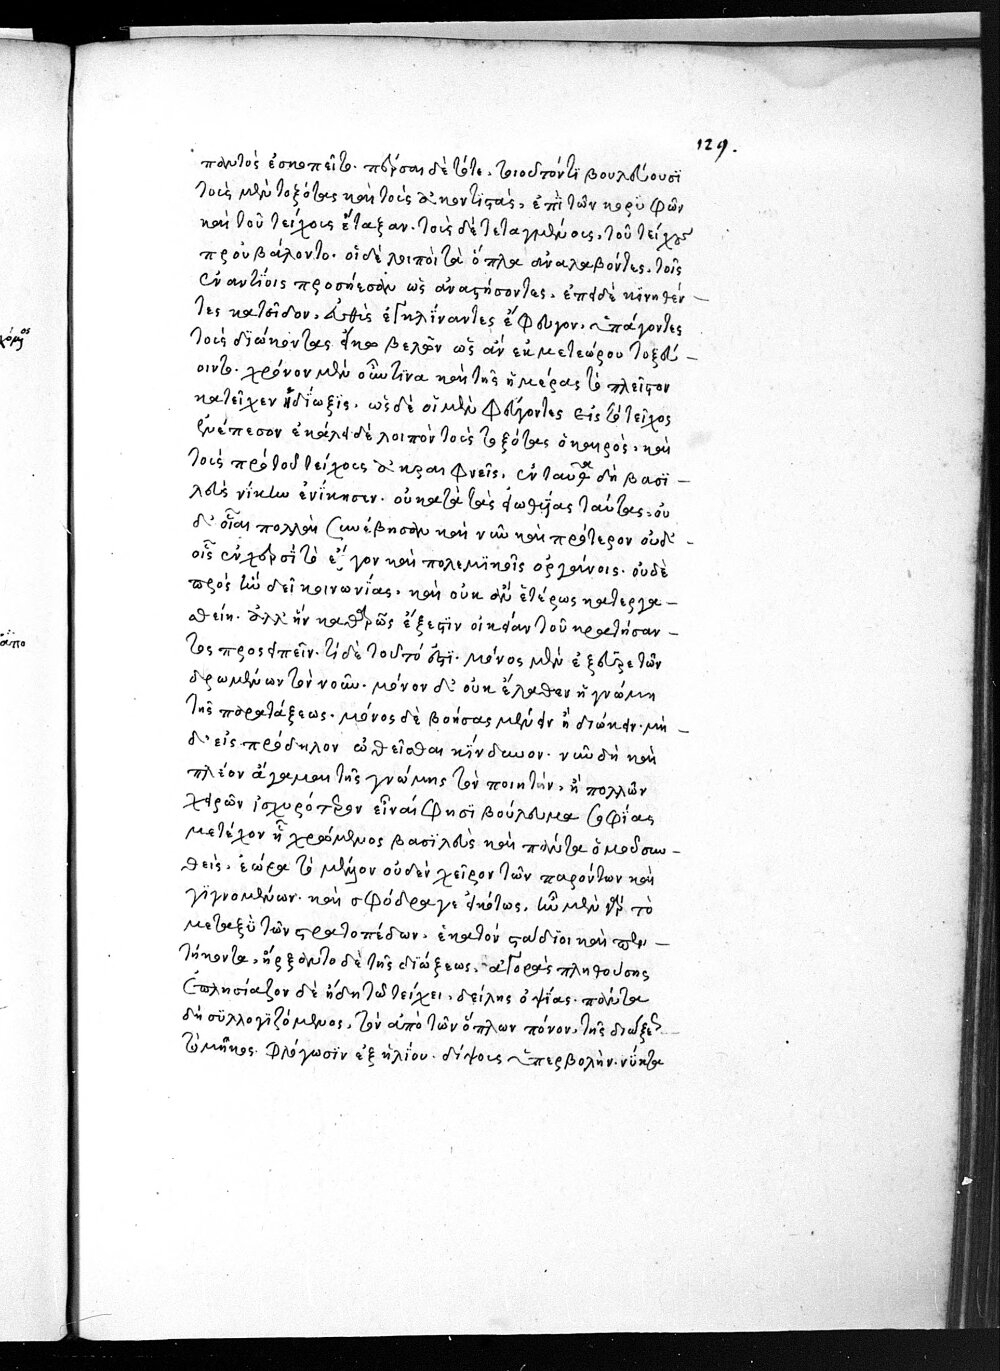 129.
παντὸς ἐσκοπεῖτο. πέρσαι δὲ τότε. τοιοῦτόν τι βουλεύουσι
τοὺς μὲν τοξότας καὶ τοὺς ἀκοντιστὰς, ἐπὶ τῶν κορυφῶν
καὶ τοῦ τείχους ἔταξαν. τοὺς δὲ τεταγμένους, τοῦ τείχους
προὐβάλοντο. οἱ δὲ λοιποὶ τὰ ὅπλα ἀναλαβόντες, τοῖς
ἐναντίοις προσήεσαν ὡς ἀναστήσοντες. ἐπεὶ δὲ κινηθέν-
τες κατεῖδον, εὐθὺς ἐγκλίναντες ἔφευγον. ὑπάγοντες
τοὺς διώκοντας εἴσω βελῶν ὡς ἂν ἐκ μετεώρου τοξεύ-
οιντο. χρόνον μὲν οὖν τινα καὶ τῆς ἡμέρας τὸ πλεῖστον
κατεῖχεν ἡ δίωξις. ὡς δὲ οἱ μὲν φεύγοντες εἰς τὸ τεῖχος
ἐνέπεσον ἐκάλει δὲ λοιπὸν τοὺς τοξότας ὁ καιρὸς, καὶ
τοὺς πρὸ τοῦ τείχους ἀκραιφνεῖς. ἐνταῦθα δὴ βασι-
λεὺς νίκην ἐνίκησεν. οὐ κατὰ τὰς εἰωθυίας ταύτας, οὐ
δ' οἷαι πολλαὶ συνέβησαν καὶ νῦν καὶ πρότερον οὐδ'
οἷς ἐν χερσὶ τὸ ἔργον καὶ πολεμικοῖς ὀργάνοις. οὐδὲ
πρὸς ἣν δεῖ κοινωνίας. καὶ οὐκ ἂν ἑτέρως κατεργα-
σθείη. ἀλλ' ἣν καθαρῶς ἔξεστιν οἰκείαν τοῦ κρατήσαν-
τος προσειπεῖν. τί δὲ τοῦτό ἐστι. μόνος μὲν ἐξεῦρε τῶν
δρωμένων τὸν νοῦν. μόνον δ' οὐκ ἔλαθεν ἡ γνώμη
τῆς παρατάξεως. μόνος δὲ βοήσας μένειν ἢ διώκειν. μη-
δ' εἰς πρόδηλον ὠθεῖσθαι κίνδυνον. νῦν δὴ καὶ
πλέον ἄγαμαι τῆς γνώμης τὸν ποιητὴν, ἣ πολλῶν
χειρῶν ἰσχυρότερον εἶναί φησι βούλευμα σοφίας
μετέχον ᾗ χρώμενος βασιλεὺς καὶ πάντα ὁμοῦ συν-
θεὶς. ἑώρα τὸ μέλλον οὐδὲν χεῖρον τῶν παρόντων καὶ
γιγνομένων. καὶ σφόδρα γε εἰκότως. ἦν μὲν γὰρ τὸ
μεταξὺ τῶν στρατοπέδων. ἑκατὸν στάδιοι καὶ πεν-
τήκοντα. ἤρξαντο δὲ τῆς διώξεως, ἀγορᾶς πληθούσης
ἐπλησίαζον δὲ ἤδη τῷ τείχει, δείλης ὀψίας. πάντα
δὴ συλλογιζόμενος, τὸν ἀπὸ τῶν ὅπλων πόνον. τῆς διώξεως
τὸ μῆκος. φλόγωσιν ἐξ ἡλίου. δίψους ὑπερβολὴν. νύκτα